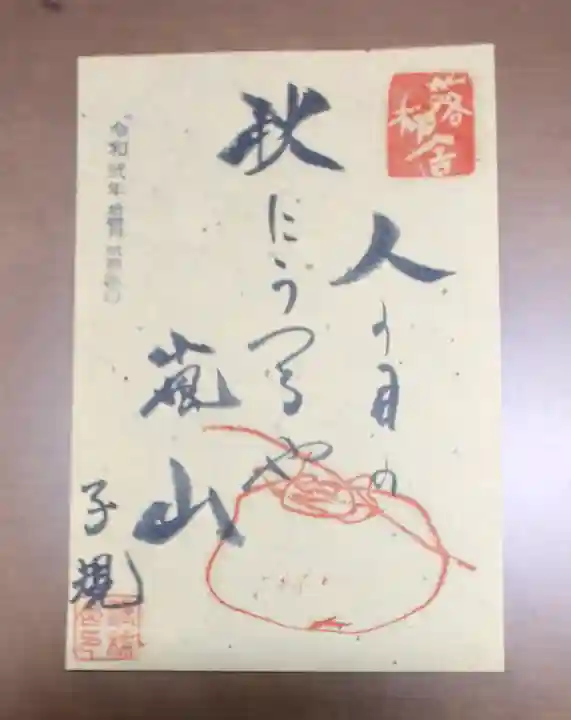 落柿舎
人の目の
秋にうつるや
嵐山
子規
令和弐年